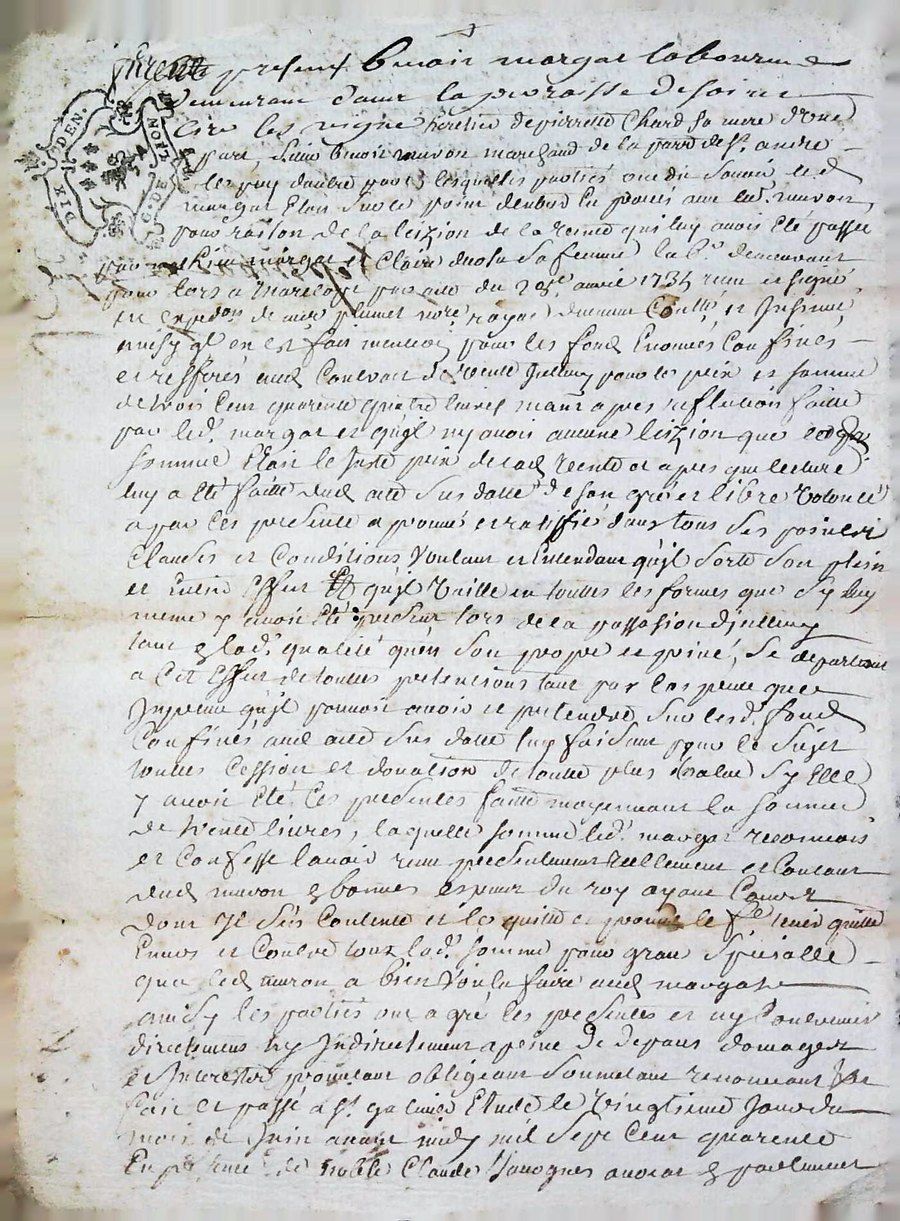 furent presens benoit margat laboureur
demeurant dans la paroisse de soirie
lire les vigne heretier de pierrette Chard sa mere d'une
part, sieur benoit muron marchand de la parr. de st. andre
les puy d'autre part, lesquelles parties ont dit scavoir led.
margat etoit sur le point dentrer en procés avec led. muron
pour raison de la leizion de la vente qui luy avoit eté passee
par mathieu margat et Claire sa femme demeurant
pour lors a par acte du avril 1734 receu et signé
en expedon. de me. plumet nore. royal duement Contlé. et Insinué
ainsy ql en est fait mention, pour les fond Enoncés Confinés
et refferés aud. Contrat de vente Jcelluy pour le prix et somme
de trois Cent quarente quatre livres mais apres reflection faitte
par led. margat et qu'jl ny avoit aucune leizion que
somme etoit le juste prix de lad. vente et apres que lecture
luy a eté faitte dud. acte sus datté de son gré et libre volonté
a par les presente aprouvé et ratiffié dans tous ses points
Clauses et Conditions voulant et entendant qu'jl sorte son plein
et entier effet et qu'jl vaille en touttes les formes que sy luy
meme y avoit eté present lors de la passasion d'jcelluy
tant lad. qualité qu'en son propre et privé, se departant
a cet effet de touttes pretensions tant par les presente que
qu'jl pouvoit avoir et pretendre sur lesd. fond
Confinés aud. acte sus datté luy faisant pour ce sujet
touttes cession et donation de toutte plus value sy Elle
y avoit eté. Ces presentes faitte moyennant la somme
de trente livres, laquelle somme led. margat reconnoit
et Confesse lavoir receu presentement reellement et Contant
dud. muron bonnes especes du roy ayant Cours
dont Jl sés Contente et le quitte et promet le fe. tenir quitte
Envers et Contre tous lad. somme pour grace specialle
que led. muron a bien voulu faire aud. margat
ainsy les parties ont agréé les presentes et ny Contrevenir
directement ny Jndirectement a peine de depans domages
et Jnterests promettant obligeant soumettant renonceant
fait et passé a st. galmier Etude le vingtieme jour du
mois de juin avant midy mil sept Cent quarente
En presence de noble Claude avocat parlement
DIX DEN.
G. DE LYON